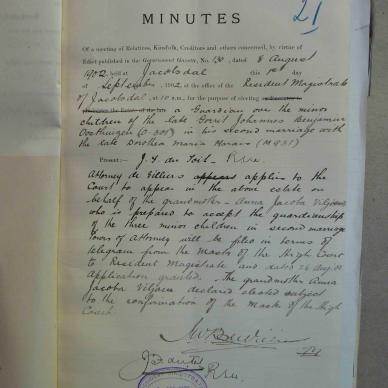 21
MINUTES
Of a meeting of Relations, Kinsfolk, Creditors and others concerned, by virtue of
Edict published in the Government Gazette, No. 130, dated 8 August
1902, held at Jacobsdal this 1st day
of September, 1902 at the office of the Resident Magistrate
of Jacobsdal, at 10 a.m., for the purpose of electing
a Guardian over the minor
children of the late Gerrit Johannes Benjamin
Oosthuizen (O.301) in his second marriage with
the late Dorothea Maria Marais (M931)
Present:— J. F. du Toit — R.M.
Attorney de Villiers appears applies to the
Court to appear in the above estate on
behalf of the grandmother - Anna Jacoba Viljoen
who is prepared to accept the guardianship
of the three minor children in second marriage
Powers of Attorney will be filed in terms of
telegram from the Master of the High Court
to Resident Magistrate and dated 26 Aug. 02
Application granted. The grandmother Anna
Jacoba Viljoen declared elected subject
to the confirmation of the Master of the High
Court.
J F du Toit
R.M.